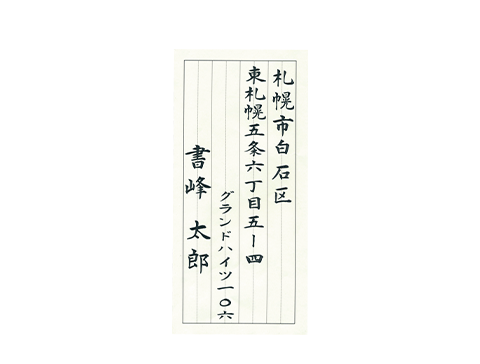 札幌市白石区
東札幌五条六丁目五ー四
グランドハイツ一〇六
書峰 太郎